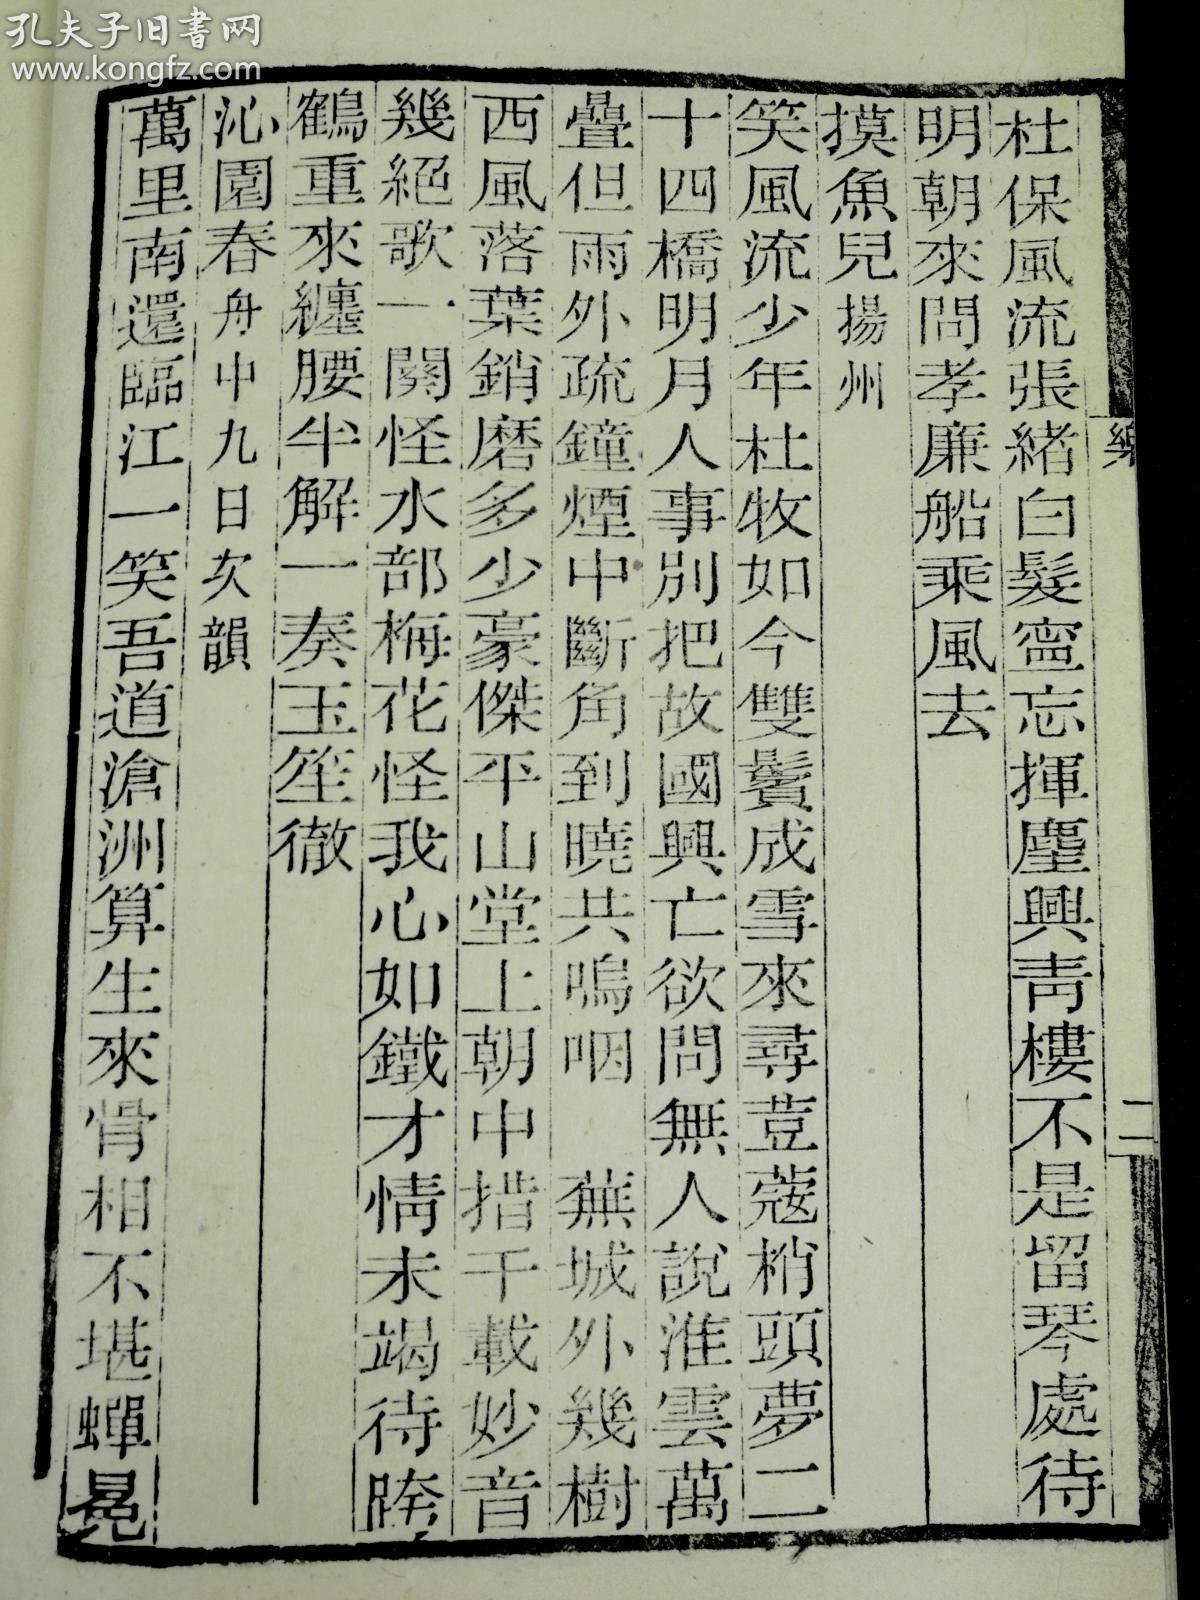 孔夫子旧书网
www.kongfz.com
杜保風流張緒白髮寍忘揮麈興青樓不是留琴處待
明朝來問孝廉船乘風去
摸魚兒揚州
笑風流少年杜牧如今雙鬢成雪來尋荳蔻梢頭夢二
十四橋明月人事別把故國興亡欲問無人說淮雲萬
疊但雨外疏鐘煙中斷角到曉共嗚咽　蕪城外幾樹
西風落葉銷磨多少豪傑平山堂上朝中措千載妙音
幾絕歌一闋怪水部梅花怪我心如鐵才情未竭待跨
鶴重來纏腰半解一奏玉笙徹
沁園春舟中九日次韻
萬里南還臨江一笑吾道滄洲算生來骨相不堪蟬冕
二